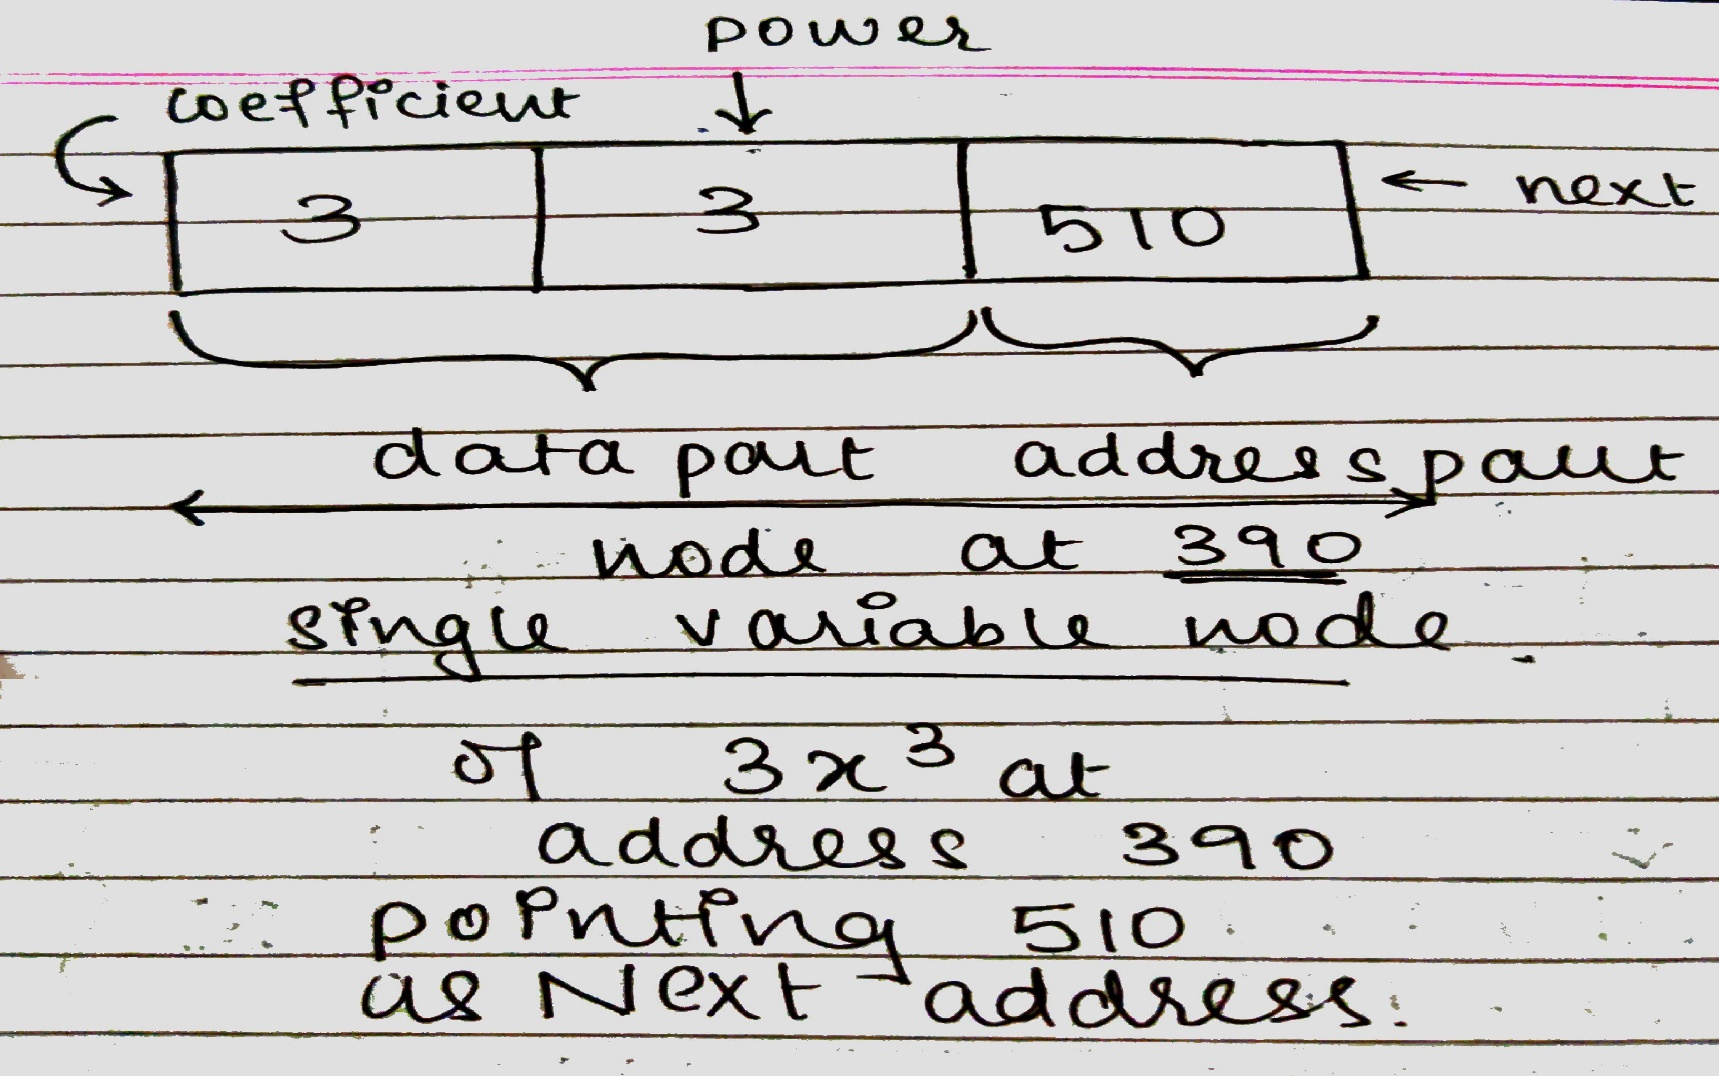 power
coefficient
3 3 510 next
data part address part
node at 390
single variable node
of 3x³ at
address 390
pointing 510
as Next address.